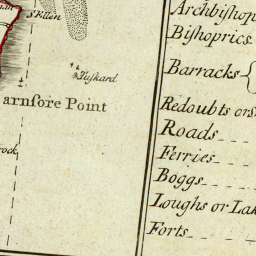 S. Ellen
Tuskard
arnsore Point
rock
Archbishop
Bishoprics
Barracks
Redoubts or S
Roads
Ferries
Boggs
Loughs or Lak
Forts